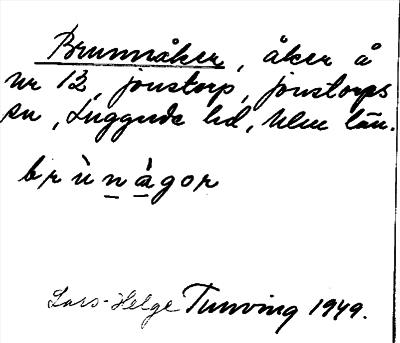 Brunnåker, åker å
nr 12, Jonstorp, Jonstorps
sn, Luggude hd, Mlm län.
brùnágor
Lars-Helge Tunving 1949.